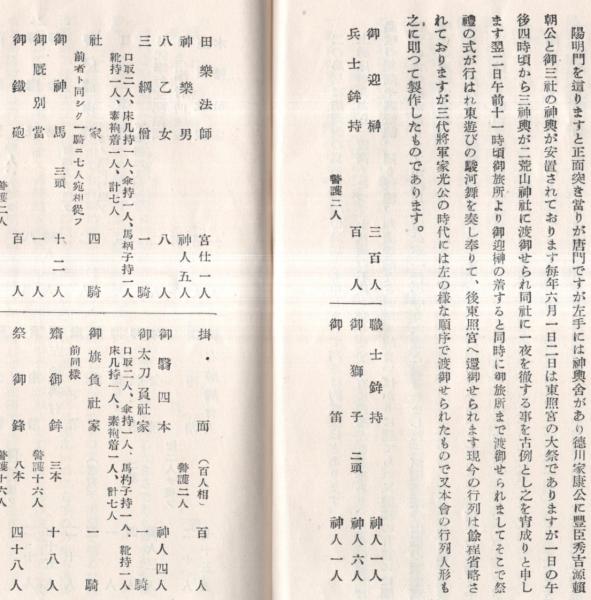 陽明門を這りますと正面突き當りが唐門ですが左手には神輿舍があり德川家康公に豐臣秀吉源賴
朝公と御三社の神輿が安置されております每年六月一日二日は東照宮の大祭でありますが一日の午
後四時頃から三神輿が二荒山神社に渡御せられ同社に一夜を徹する事を古例とし之を宵成りと申し
ます翌二日午前十一時頃御旅所より御迎榊の着すると同時に御旅所まで渡御せられましてそこで祭
禮の式が行はれ東遊びの駿河舞を奏し奉りて、後東照宮へ還御せられます現今の行列は餘程省略さ
れておりますが三代將軍家光公の時代には左の樣な順序で渡御せられたもので又本會の行列人形も
之に則つて製作したものであります。
御迎榊 三百人
兵士鉾持 百人
警護二人
職士鉾持 神人一人
御獅子 二頭 神人六人
御笛 神人一人
田樂法師 宮仕一人
神樂男 神人五人
八乙女 八人
三綱僧 一騎
口取二人、床几持一人、傘持一人、馬柄子持一人
靴持一人、素袍着一人、計七人
社家 四騎
前者ト同シク一騎ニ七人宛相從フ
御神馬 三頭 十二人
御厩別當 一人
御鐵砲 百人
警護二人
掛・面 (百人相) 百人
警護二人
御翳四本 神人四人
御太刀負社家 一騎
口取二人、傘持一人、馬杓子持一人、靴持一人
床几持一人、素袍着一人、計七人
御旗負社家 一騎
前同樣
齋御鉾 三本 十八人
警護十六人
祭御鋒 八本 四十八人
警護十六人